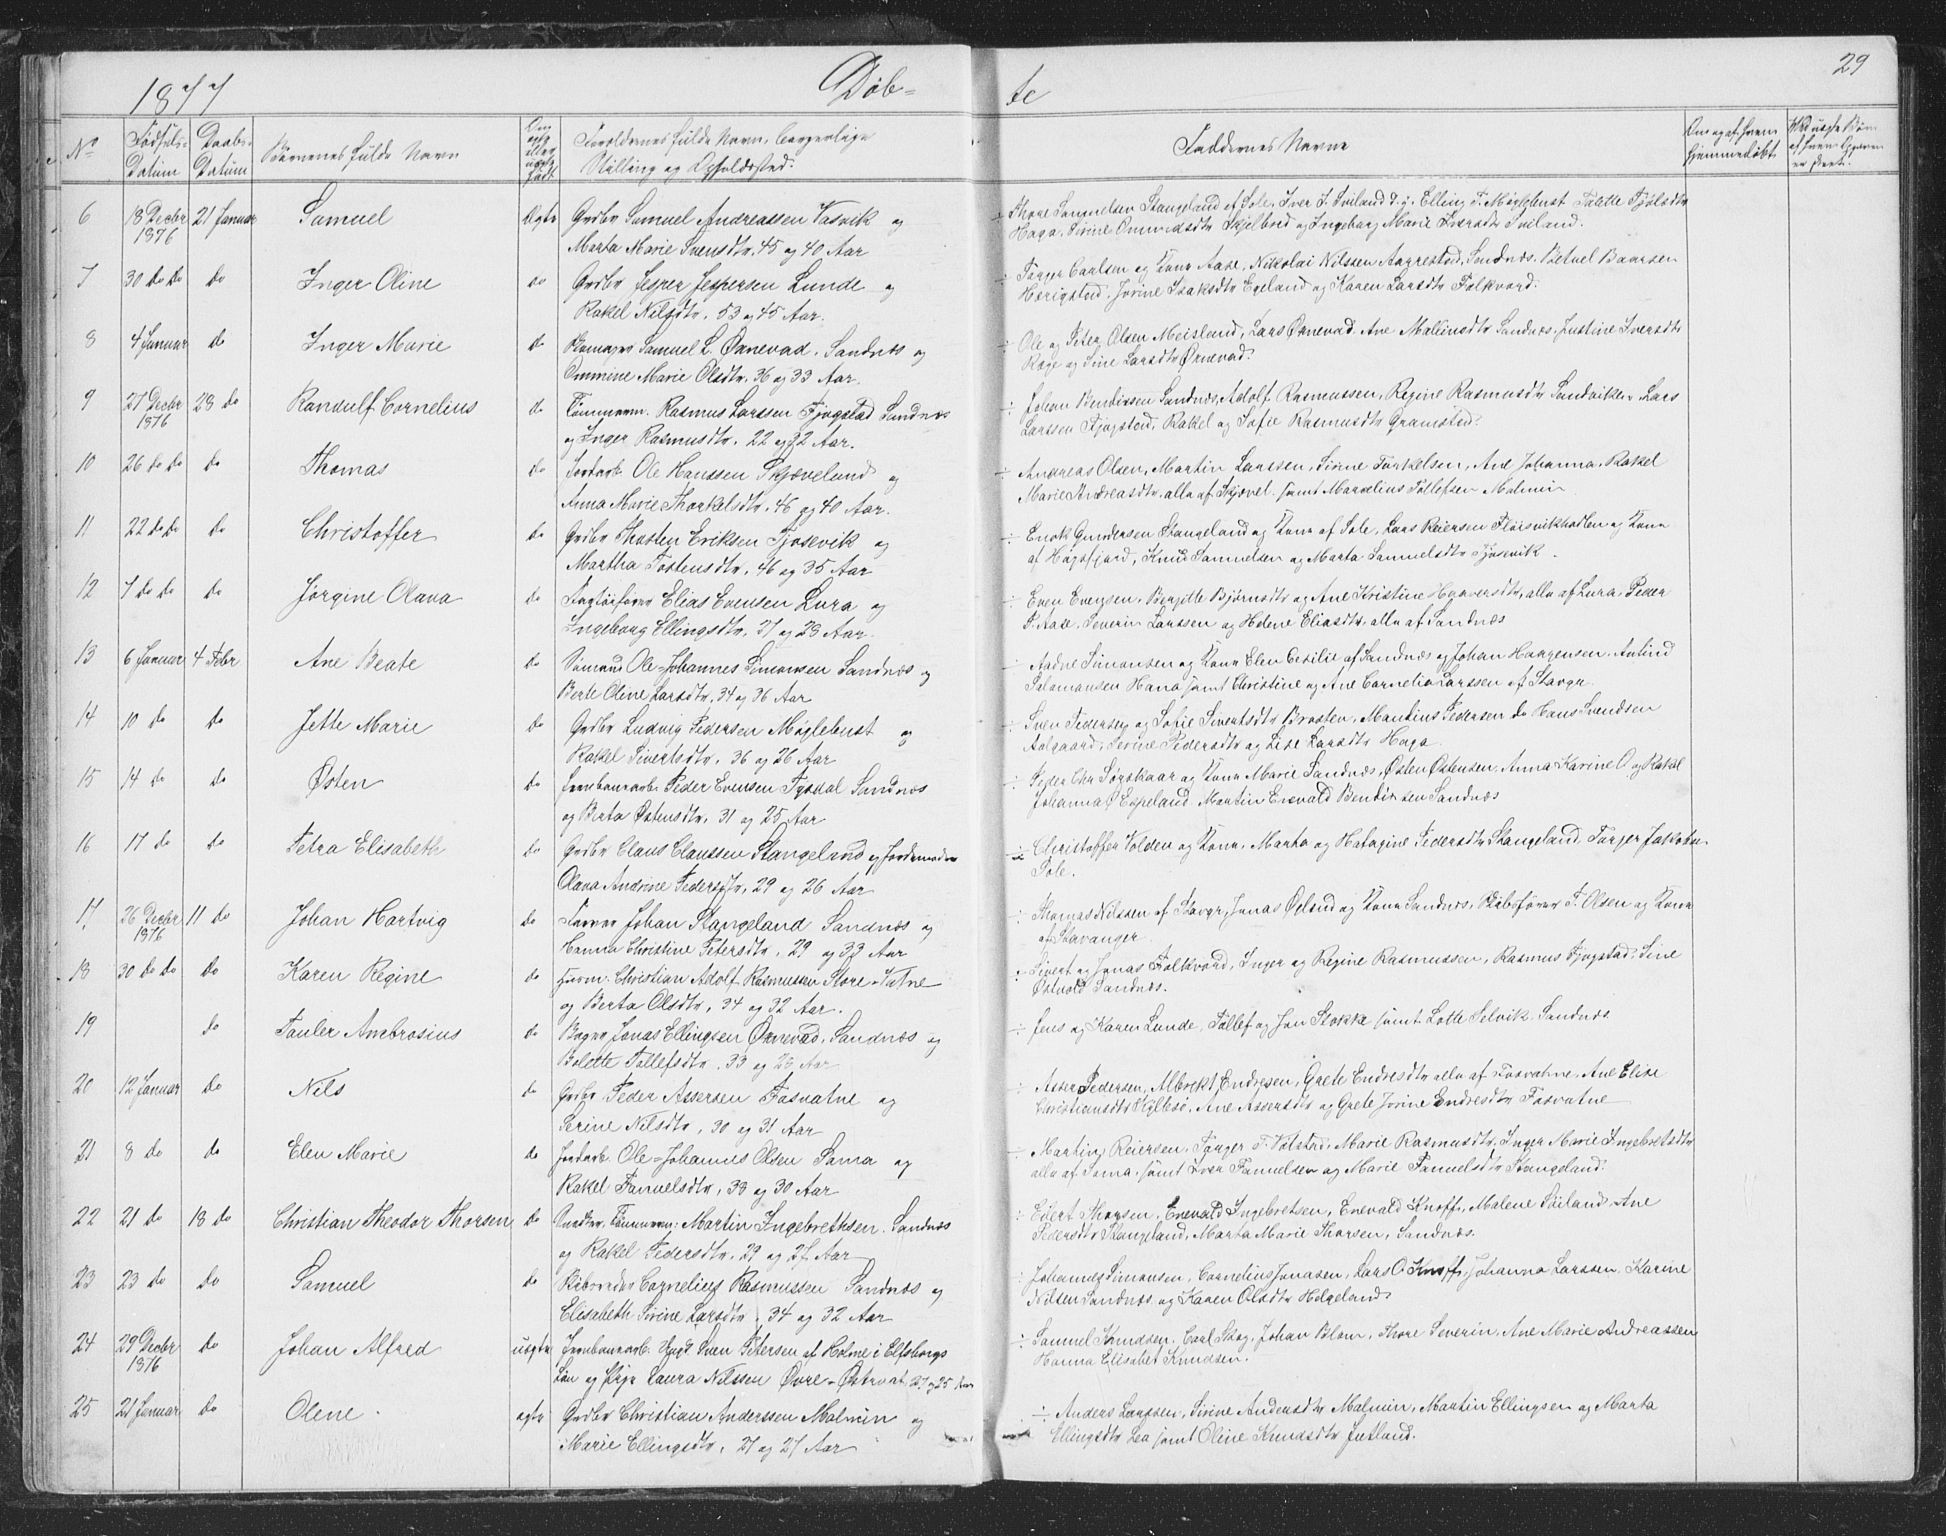 1877
Døb-
te
29
No
Fødsels-Datum
Daabs-Datum
Børnenes fulde Navn
Forældrenes fulde Navn, borgerlige
Stilling og Opholdssted.
Faddernes Navne
6 18 Decbr 1876 21 Januar Samuel Ægte Grdbr Samuel Andreassen Vasvik og
Marta Marie Svensdtr, 45 og 40 Aar
Thore Samuelsen Stangeland af Sole, Iver
Haga, Sirine og Ingeborg Marie Iversdtr
7 30 do do do Inger Oline do Grdbr Jesper Jespersen Lunde og
Rakel Nilsdtr. 53 og 45 Aar.
Torger Carlsen og Kone Aase, Nikolai Nilssen Aarrestad, Sandnæs. Betuel Baarsen
Herigstad, Jorine Isaksdtr Egeland og Karen Larsdtr Folkvord.
8 4 Januar do Inger Marie do Samuel L. Ørnevad, Sandnæs og
Ommine Marie Olsdtr. 36 og 33 Aar.
Ole og Peter Olsen Meisland, Lars Ørnevad. Ane Mallinsdtr Sandnæs, Justine Iversdtr
Røge og Sine Larsdtr Ørnevad.
9 27 Decbr 1876 28 do Randulf Cornelius do Tømmerm. Rasmus Larssen Fjogstad Sandnæs
og Inger Rasmusdtr. 22 og 22 Aar.
Johan Sandnæs, Adolf Rasmussen, Regine Rasmusdtr Sandviken, Lars
Larssen Fjogstad, Rakel og Sofie Rasmusdtr Gramstad.
10 26 do do do Thomas do Jordarb. Ole Hanssen Skjæveland og
Anna Marie Thorkelsdtr. 46 og 40 Aar.
Andreas Olsen, Martin Larssen, Sirine Torkelsen, Ane Johanna, Rakel
Marie Andreasdtr, alle af Skjævel. samt Marselius Tollefsen Malmin
11 22 do do do Christoffer do Grdbr Thosten Eriksen Tjosevik og
Martha Tostensdtr. 46 og 35 Aar
Enok Gundersen Stangeland og Kone af Sole, Lars Reiersen og Kone
af Høgsfjord, Knud Samuelsen og Marta Samuelsdtr Tjosevik.
12 7 do do do Jørgine Olava do Elias Evensen Lura og
Ingeborg Ellingsdtr. 27 og 28 Aar.
Even Evensen, Birgitte Bjørnsdtr og Ane Kristine Haaversdtr, alle af Lura, Peder
T. Aase, Severin Larssen og Helene Eliasdtr alle af Sandnæs
13 6 Januar 4 Febr Ane Beate do Sømand Ole Johannes Simonsen Sandnæs og
Berte Oline Larsdtr, 34 og 36 Aar
Aadne Simonsen og Kone Elen Cesilie af Sandnæs og Johan Haagensen. Autind
Salamonsen Hana samt Christine og Ane Cornelia Larssen af Stavgr.
14 10 do do Jette Marie do Grdbr Ludvig Pedersen Møglebust og
Rakel Sivertsdtr, 36 og 26 Aar
Sven Pedersen og Sofie Sivertsdtr Brosten, Mantius Pedersen do Hans Svendsen
Aalgaard, Serine Pedersdtr og Lise Larsdtr Haga.
15 14 do do Østen do Jernbanearb. Peder Evensen Tysdal Sandnæs
og Berta Østensdtr, 31 og 25 Aar
Peder Chr Sørskaar og Kone Marie Sandnæs, Østen Østensen. Anna Karine O. og Rakel
Johanna Ø Espeland. Martin Enevald Bentsen Sandnæs
16 17 do do Petra Elisabeth do Grdbr Claus Claussen Stangeland og Jordemoder
Olava Andrine Pedersdtr, 29 og 26 Aar
Christoffer Volden og Kone, Marta og Petersdtr Stangeland, Torger Jakobsen
Sole.
17 26 Decbr 1876 11 do Johan Hartvig do Farver Johan Stangeland Sandnæs og
Hanna Christine Petersdtr, 29 og 33 Aar
Thomas Nilssen af Stavgr, Jonas Øglænd og Kone Sandnæs, Skibsfører T. Olsen og Kone
af Stavanger.
18 30 do do do Karen Regine do Huusm. Christian Adolf Rasmussen Store-Vatne
og Berta Olsdtr, 34 og 32 Aar.
Sivert og Jonas Folkvord, Inger og Regine Rasmussen, Rasmus Fjogstad, Sine
Østvold Sandnæs.
19 do Pauler Ambrosius do Bager Jonas Ellingsen Ørnevad, Sandnæs og
Bolette Tollefsdtr. 33 og 28 Aar
Jens og Karen Lunde, Tollef og Jon Stokke samt Lotte Selvik, Sandnæs
20 12 Januar do Nils do Grdbr Peder Assersen Fosvatne og
Serine Nilsdtr, 30 og 31 Aar
Asser Pedersen, Albrekt Endresen, Grete Endresdtr alle af Fosvatne. Ane Elise
Christiansdtr Kyllesø, Ane Assersdtr og Grete Jorine Endresdtr Fosvatne
21 8 do do Elen Marie do Jordarb. Ole Johannes Olsen Soma og
Rakel Samuelsdtr, 38 og 30 Aar
Martin Reiersen, Torger T. Votstad, Marie Rasmusdtr, Inger Marie Ingebretsdtr
alle af Soma, samt Iver Samuelsen og Marie Samuelsdtr Stangeland.
22 21 do 18 do Christian Theodor Thorsen do Tømmerm. Martin Ingebrethsen. Sandnæs
og Rakel Pedersdtr, 29 og 27 Aar
Edert Thorsen, Enevald Ingebretsen, Enevald Knoff, Malene Søiland, Ane
Pedersdtr Stangeland, Marta Marie Thorsen, Sandnæs.
23 23 do do Samuel do Skibsreder Cornelius Rasmussen Sandnæs og
Elisabeth Sirine Larsdtr, 34 og 32 Aar
Johannes Simonsen, Cornelius Jonasen, Lars O Knoff, Johanna Larssen. Karine
Nilsen Sandnæs og Karen Olsdtr Helgeland
24 29 Decbr 1876 do Johan Alfred uægte Jernbanearb. Ungk. Sven Petersen af Holme i Elfsborgs
Län og Pige Laura Nilssen Øvre-Østervat 27 og 25 Aar
Samuel Knudsen, Carl Skog, Johan Blom, Thore Severin, Ane Marie Andreassen
Hanna Elisabet Knudsen.
25 21 Januar do Olene ægte Grdbr Christian Anderssen Malmin og
Marie Ellingsdtr, 27 og 27 Aar
Anders Larssen, Sirine Andersdtr Malmin, Martin Ellingsen og Marta
Ellingsdtr Lea samt Oline Knudsdtr Jutland.